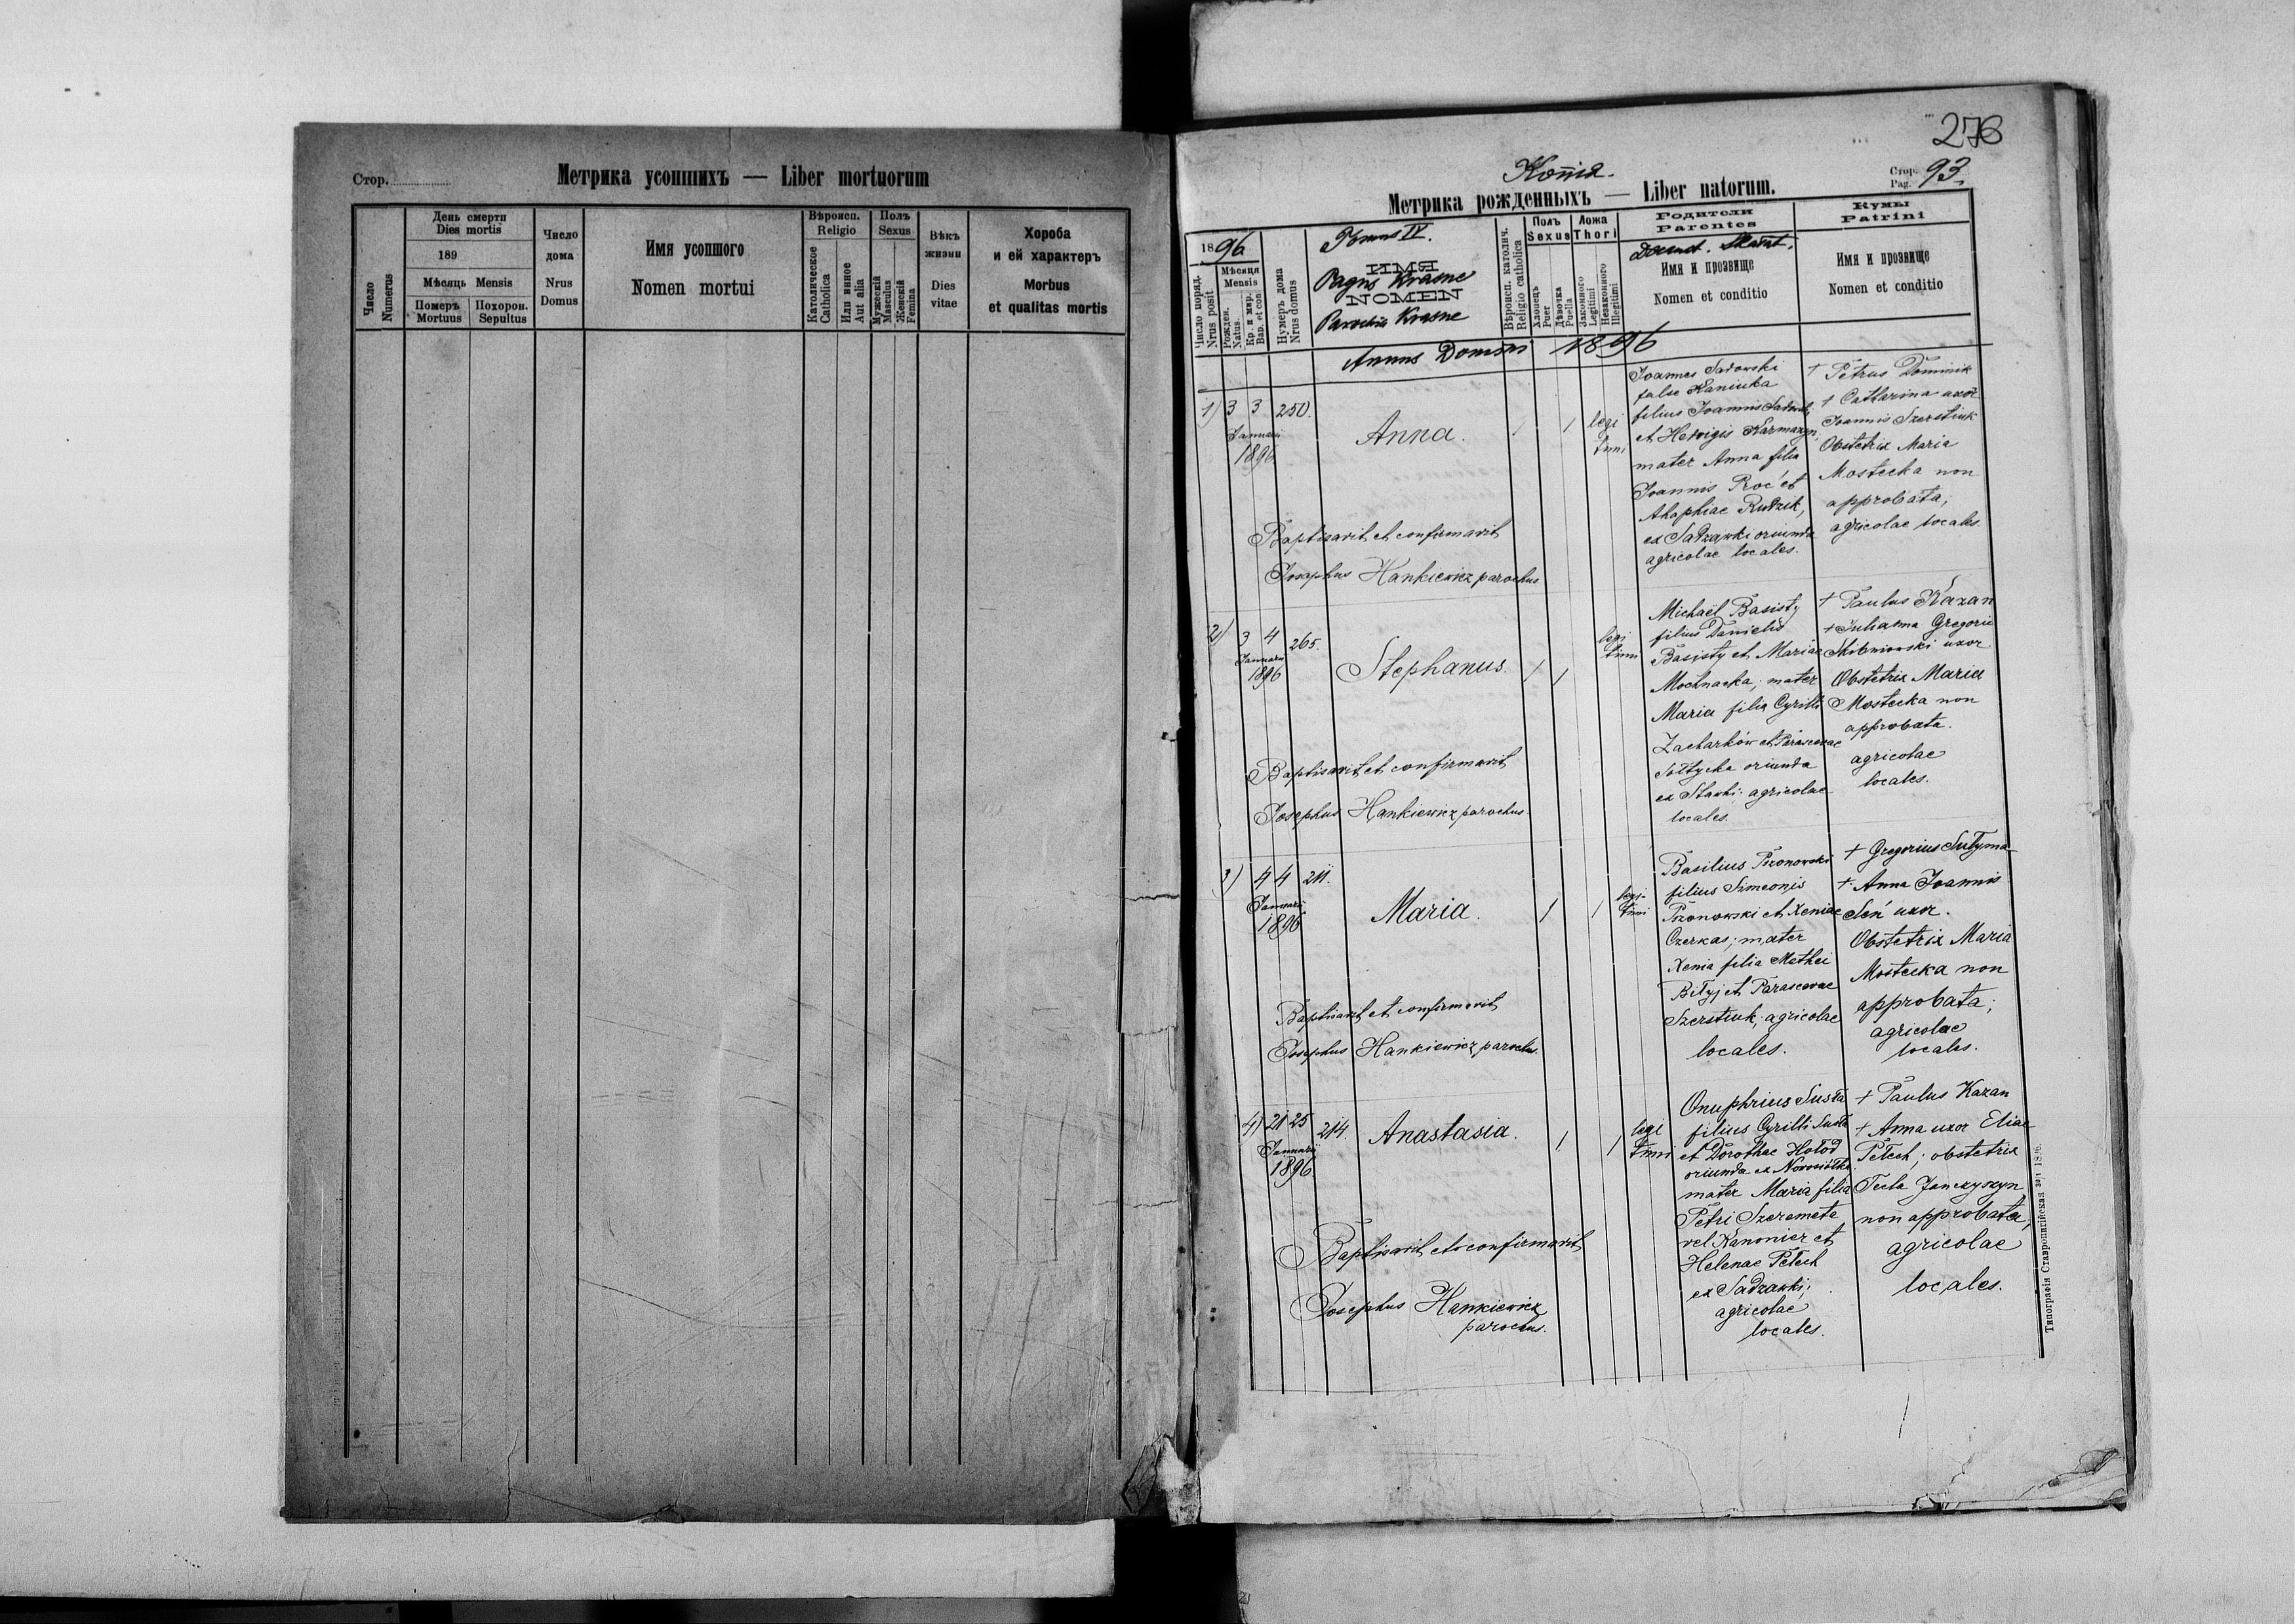 Стор.
Метрика усопшихъ — Liber mortuorum
Число
Numerus
День смерти
Dies mortis
189
Мѣсяць Mensis
Померъ
Mortuus
Похорон.
Sepultus
Число
дома
Nrus
Domus
Имя усопшого
Nomen mortui
Вѣроисп.
Religio
Католическое
Catholica
Или инное
Aut alia
Полъ
Sexus
Мужескій
Masculus
Женскій
Femina
Вѣкъ
жизни
Dies
vitae
Хороба
и ей характеръ
Morbus
et qualitas mortis
276
Копія.
Стор.
Pag.
93
Метрика рожденныхъ — Liber natorum.
1896
Число поряд.
Nrus posit.
Мѣсяця
Mensis
Рожден.
Natus
Кр. и мѵр.
Bap. et con.
Нумеръ дома
Nrus domus
Tomus IV.
ИМЯ
Pagus Krasne
NOMEN
Parochia Krasne
Вѣроисп. католич.
Religio catholica
Полъ
Sexus
Хлопецъ
Puer
Дѣвочка
Puella
Ложа
Thori
Законного
Legitimi
Незаконного
Illegitimi
Родители
Parentes
Имя и прозвище
Nomen et conditio
Кумы
Patrini
Имя и прозвище
Nomen et conditio
Annus Domini 1896
1) 3 3 250.
Januarii
1896
Anna.
legi
timi
Joannes Sadowski
false Haniuka
filius Joannis Sadowski
et Hedvigis Karmazyn,
mater Anna filia
Joannis Proć et
Ahaphiae Rudzik,
ex Sadzawki oriunda
agricolae locales.
+ Petrus Dominik
+ Catharina uxor
Joannis Szerstiuk
Obstetrix Maria
Mostecka non
approbata;
agricolae locales.
Baptisavit et confirmavit
Josephus Hankiewicz parochus
2) 3 4 265.
Januarii
1896
Stephanus.
legi
timi
Michaël Basisty
filius Danielis
Basisty et Mariae
Mochnacka; mater
Maria filia Cyrilli
Zacharków et Parascevae
Sołtycka oriunda
ex Stawki; agricolae
locales.
+ Paulus Kazan
+ Julianna Gregorii
Skibniowski uxor
Obstetrix Maria
Mostecka non
approbata.
agricolae
locales.
Baptisavit et confirmavit
Josephus Hankiewicz parochus.
3) 4 4 211.
Januarii
1896
Maria.
legi-
timi
Basilius Pronowski
filius Simeonis
Pronowski et Xeniae
Czerkas; mater
Xenia filia Mathei
Biłyj et Parascevae
Szerstiuk; agricolae
locales.
+ Gregorius Sułyma
+ Anna Joannis
Seń uxor.
Obstetrix Maria
Mostecka non
approbata;
agricolae
locales.
Baptisavit et confirmavit
Josephus Hankiewicz parochus.
4) 21 25 214.
Januarii
1896
Anastasia.
legi
timi
Onuphrius Susła
filius Cyrilli Susła
et Dorotheae Hołod
oriunda ex Nowosiółka
mater Maria filia
Petri Szeremeta
vel Kanonier et
Helenae Petech
ex Sadzawki;
agricolae
locales.
+ Paulus Kazan
+ Anna uxor Eliae
Petech; obstetrix
Tecla Janczyszyn
non approbata;
agricolae
locales.
Baptisavit et confirmavit
Josephus Hankiewicz
parochus.
Типографія Ставропигійская